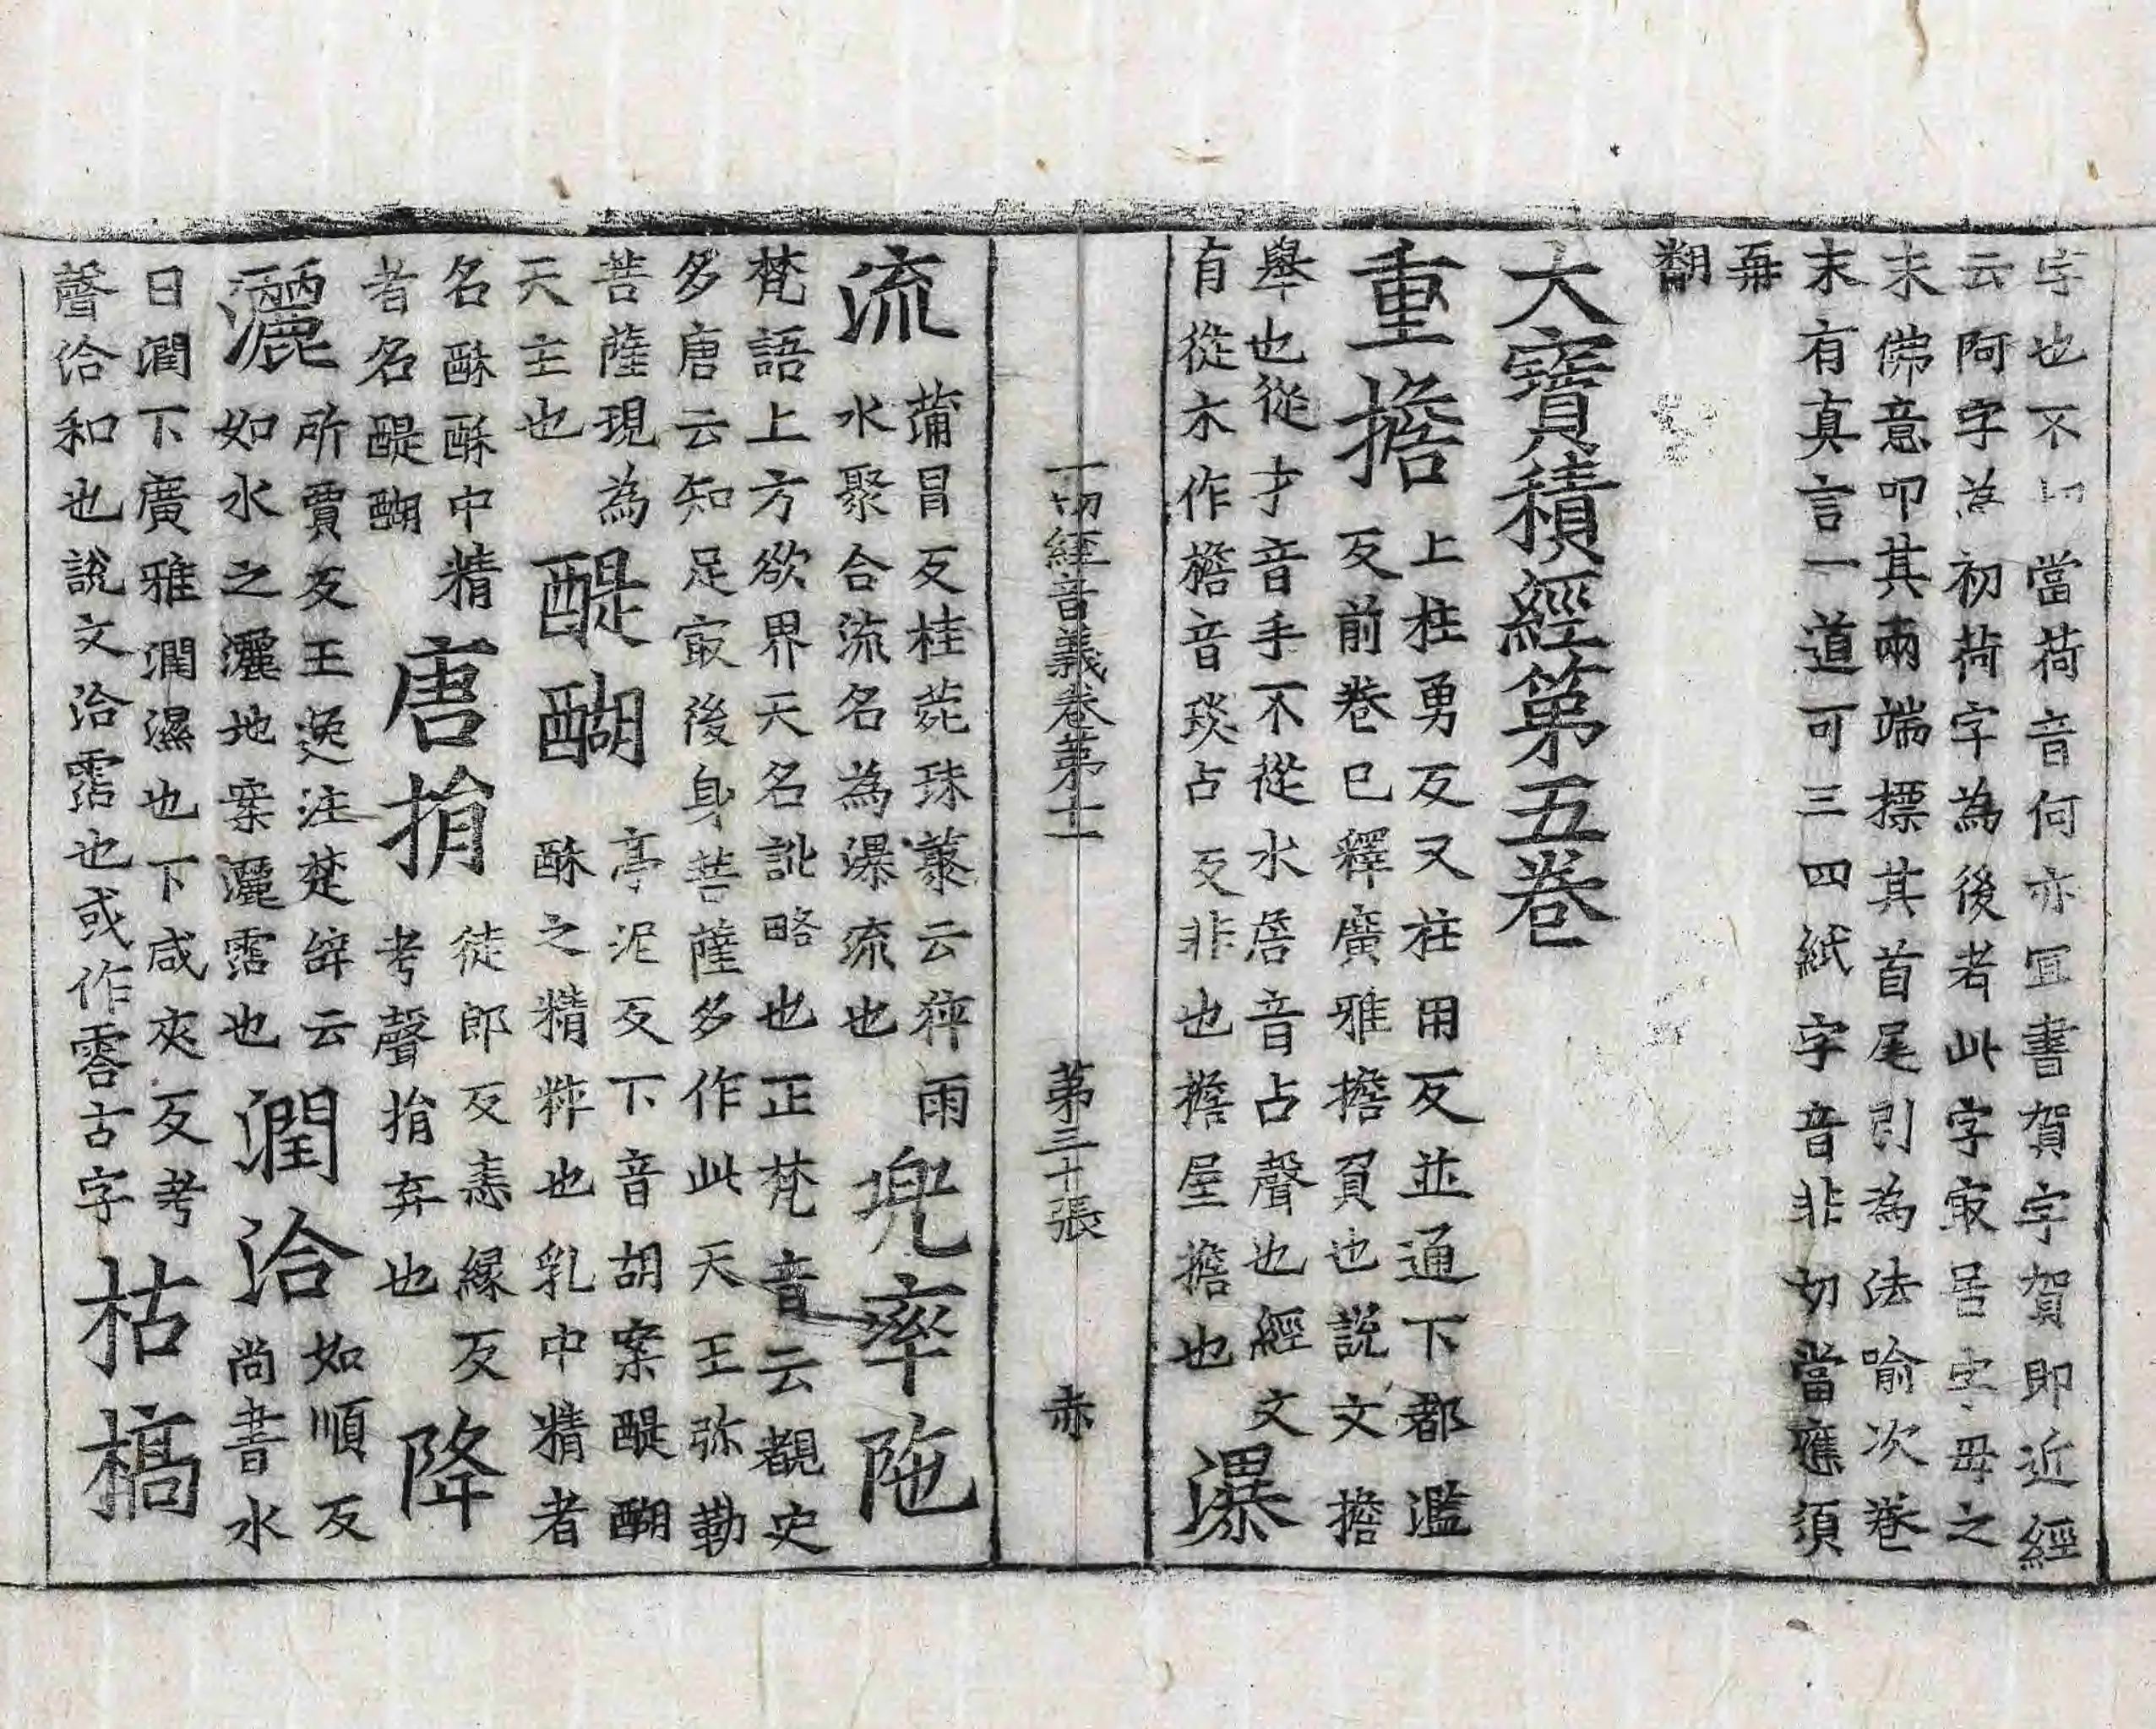 字也不切當荷音何亦冝書賀字賀即近經
云阿字為初荷字為後者此字㝡居字母之
末佛意叩其兩端標其首尾引為法喻次卷
末有真言一道可三四紙字音非切當應須
再
翻
大寶積經第五卷
重擔
上柱勇反又柱用反並通下都濫
反前卷已釋廣雅擔負也說文擔
舉也從才音手不從水詹音占聲也經文
有從木作檐音琰占反非也檐屋擔也
瀑
一切經音義卷第十一 第三十張 赤
流
蒲冒反桂菀珠叢云猝雨
水聚合流名為瀑流也
兜率陁
梵語上方欲界天名訛略也正梵音云覩史
多唐云知足㝡後身菩薩多作此天王弥勒
菩薩現為
天主也
醍醐
亭泥反下音胡案醍醐
酥之精粹也乳中精者
名酥酥中精
者名醍醐
唐捐
徒郎反恚緣反
考聲捐弃也
降
灑
所賈反王逸注楚辞云
如水之灑地案灑霑也
潤洽
如順反
尚書水
曰潤下廣雅潤濕也下咸夾反考
聲洽和也說文洽霑也或作霠古字
枯槁